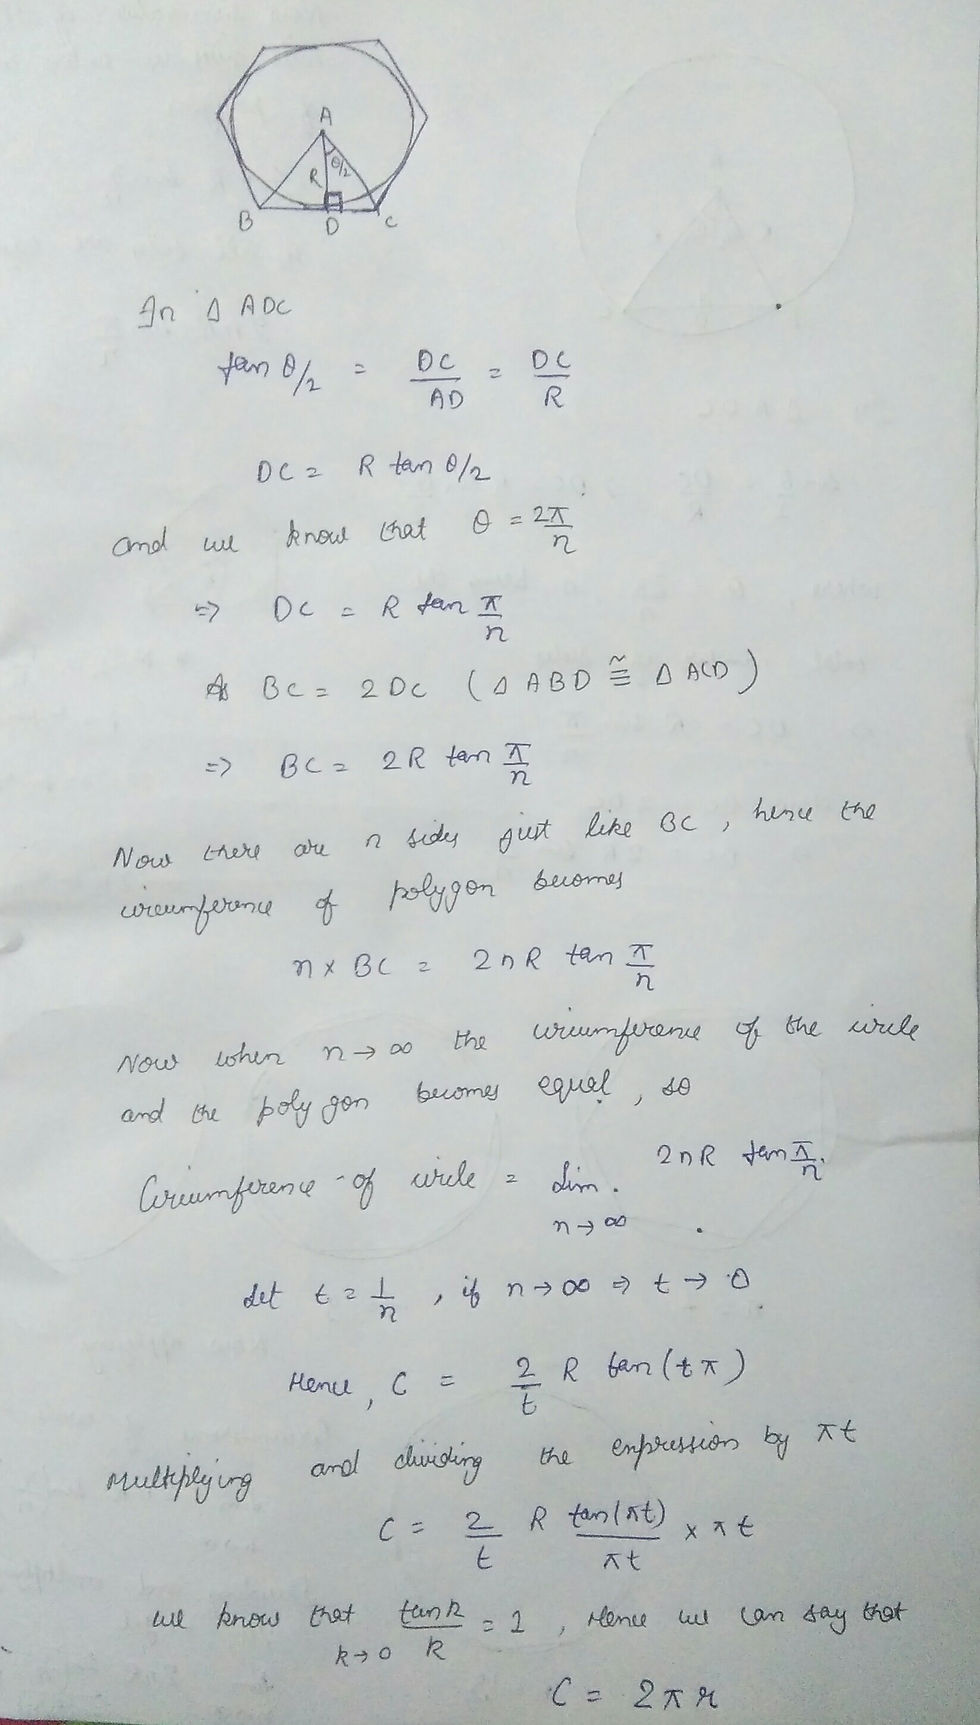 A
R θ/2
B D C
In Δ ADC
tan θ/2 = DC/AD = DC/R
DC = R tan θ/2
and we know that θ = 2π/n
=> DC = R tan π/n
As BC = 2DC (Δ ABD ≅ Δ ACD)
=> BC = 2R tan π/n
Now there are n sides just like BC, hence the
circumference of polygon becomes
n x BC = 2nR tan π/n
Now when n → ∞ the circumference of the circle
and the polygon becomes equal, so
Circumference of circle = Lim n→∞ 2nR tan π/n.
Let t = 1/n, if n → ∞ ⇒ t → 0
Hence, C = 2/t R tan(tπ)
Multiplying and dividing the expression by πt
C = 2/t R tan(πt)/πt x πt
we know that k→0 tan k/k = 1, Hence we can say that
C = 2πr